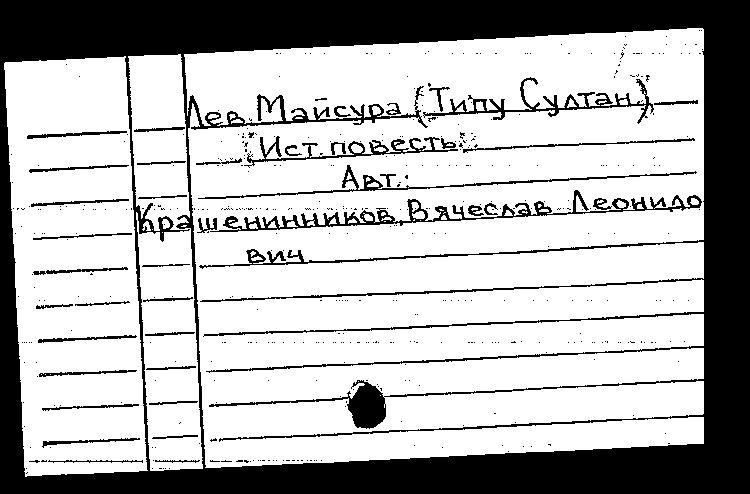 Лев Майсура (Типу Султан)
[Ист. повесть].
Авт.:
Крашенинников, Вячеслав Леонидо
вич.